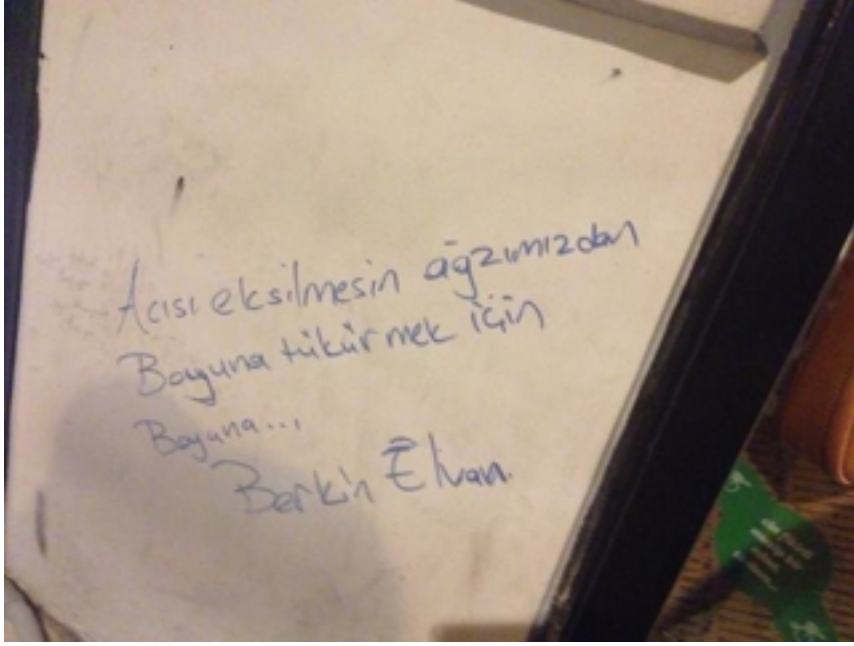 Acısı eksilmesin ağzımızdan
Boyuna tükürmek için
Boyuna...
Berkin Elvan